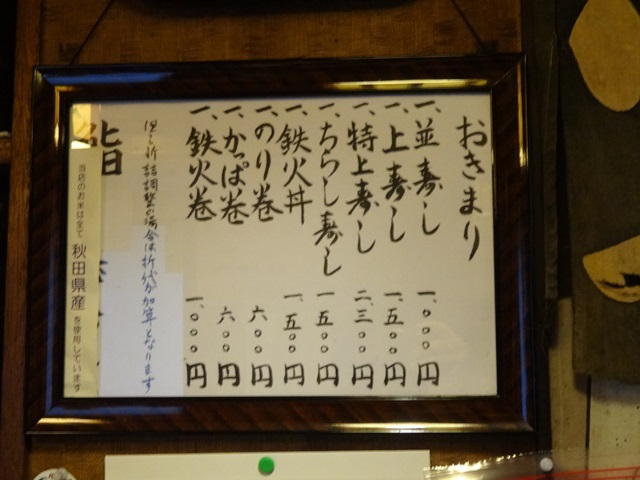 おきまり
一、並寿し 一、〇〇〇円
一、上寿し 一、五〇〇円
一、特上寿し 二、三〇〇円
一、ちらし寿し 一、五〇〇円
一、鉄火丼 一、五〇〇円
一、のり巻 六〇〇円
一、かっぱ巻 六〇〇円
一、鉄火巻 一、〇〇〇円
但し折詰調整の場合は折代分加算となります
当店のお米は全て 秋田県産 を使用しています